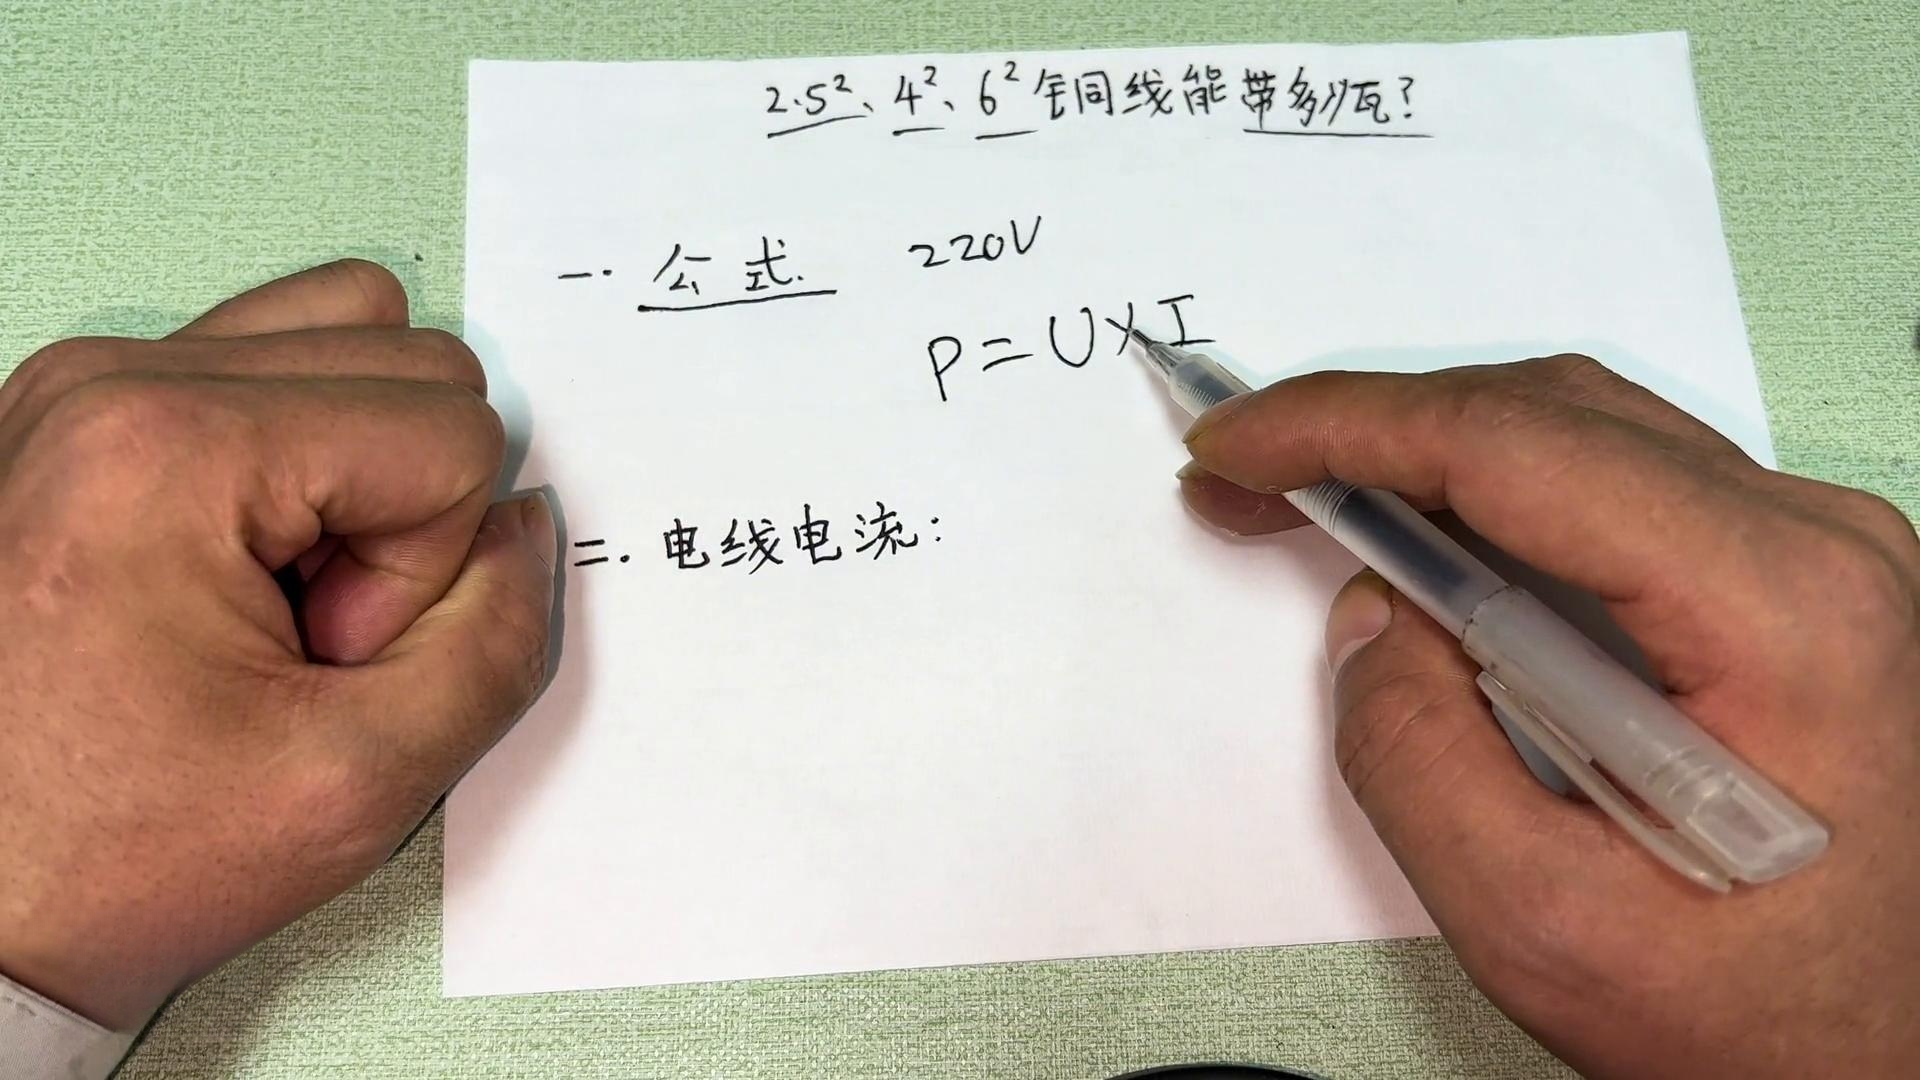 2.5²、4²、6²铜线能带多少瓦?
一. 公式.
220V
P=U×I
二. 电线电流: